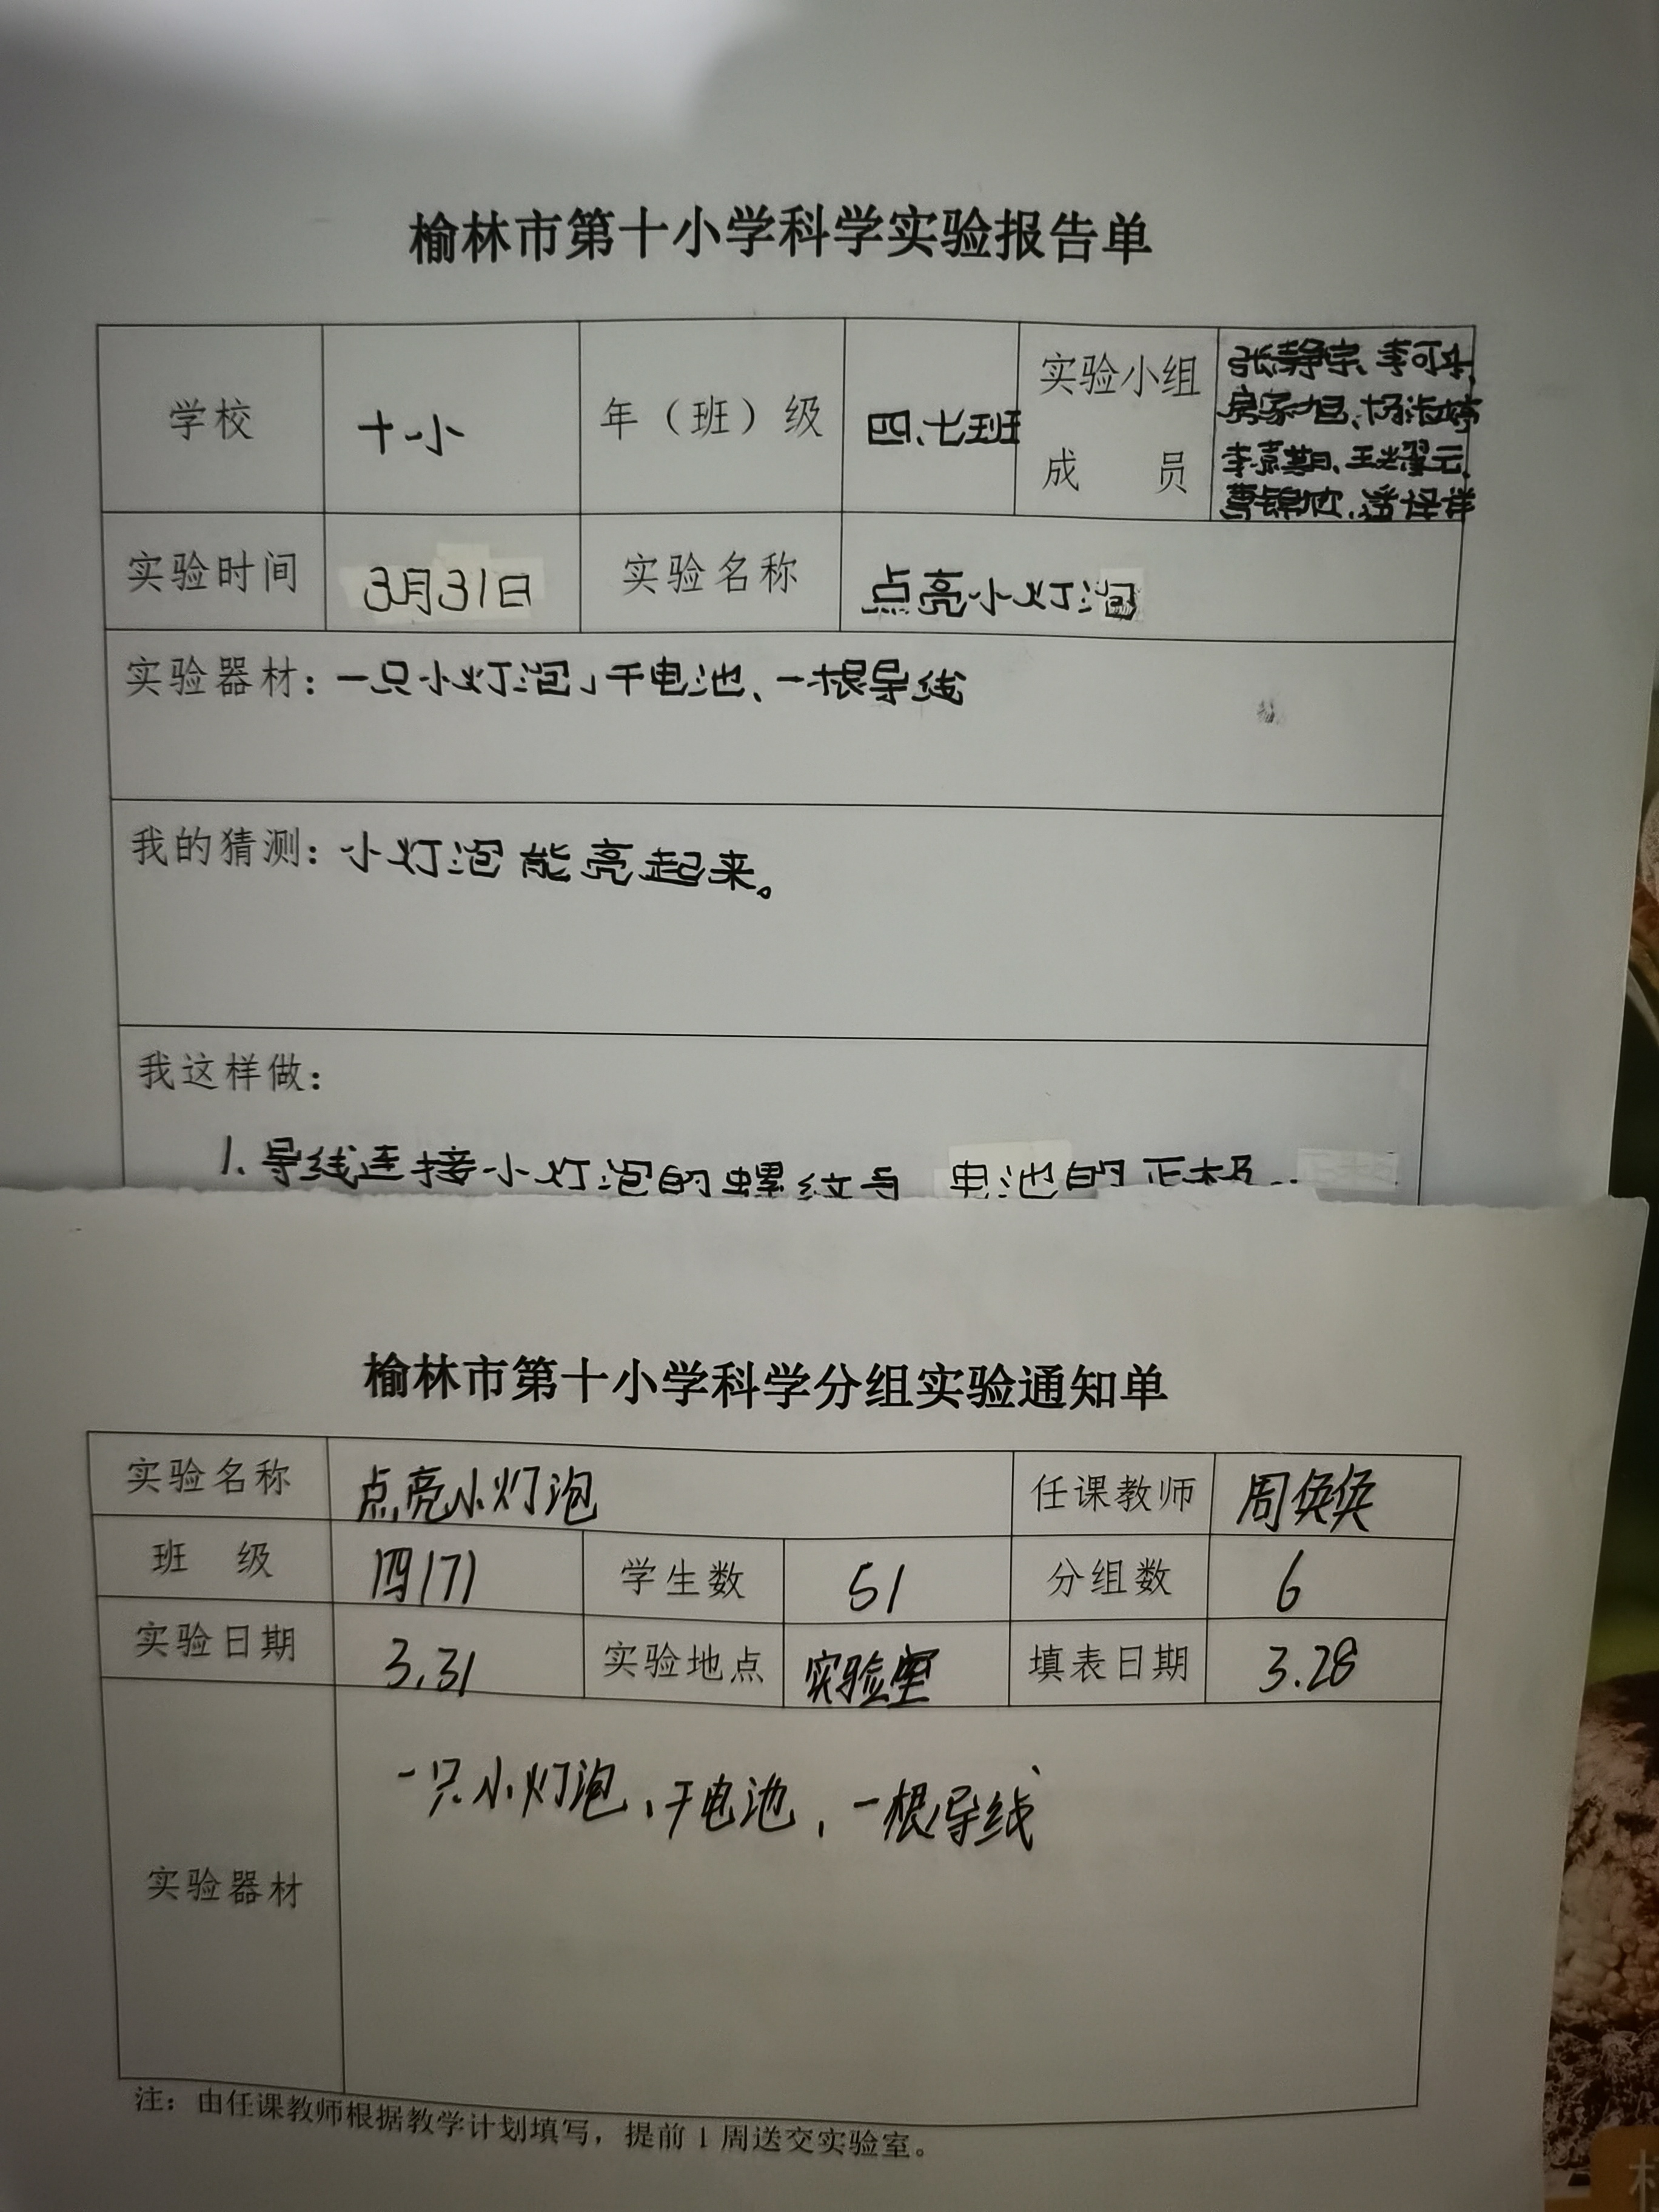 榆林市第十小学科学实验报告单
学校 十小 年（班）级 四.七班 实验小组成员 张静宗、李可
杨浩婷
李嘉
曹锦欣
实验时间 3月31日 实验名称 点亮小灯泡
实验器材：一只小灯泡、干电池、一根导线
我的猜测：小灯泡能亮起来。
我这样做：
1.导线连接小灯泡的螺纹与 电池的正极
榆林市第十小学科学分组实验通知单
实验名称 点亮小灯泡 任课教师 周
班 级 四171 学生数 51 分组数 6
实验日期 3.31 实验地点 实验室 填表日期 3.28
一只小灯泡、干电池，一根导线
实验器材
注：由任课教师根据教学计划填写，提前1周送交实验室。